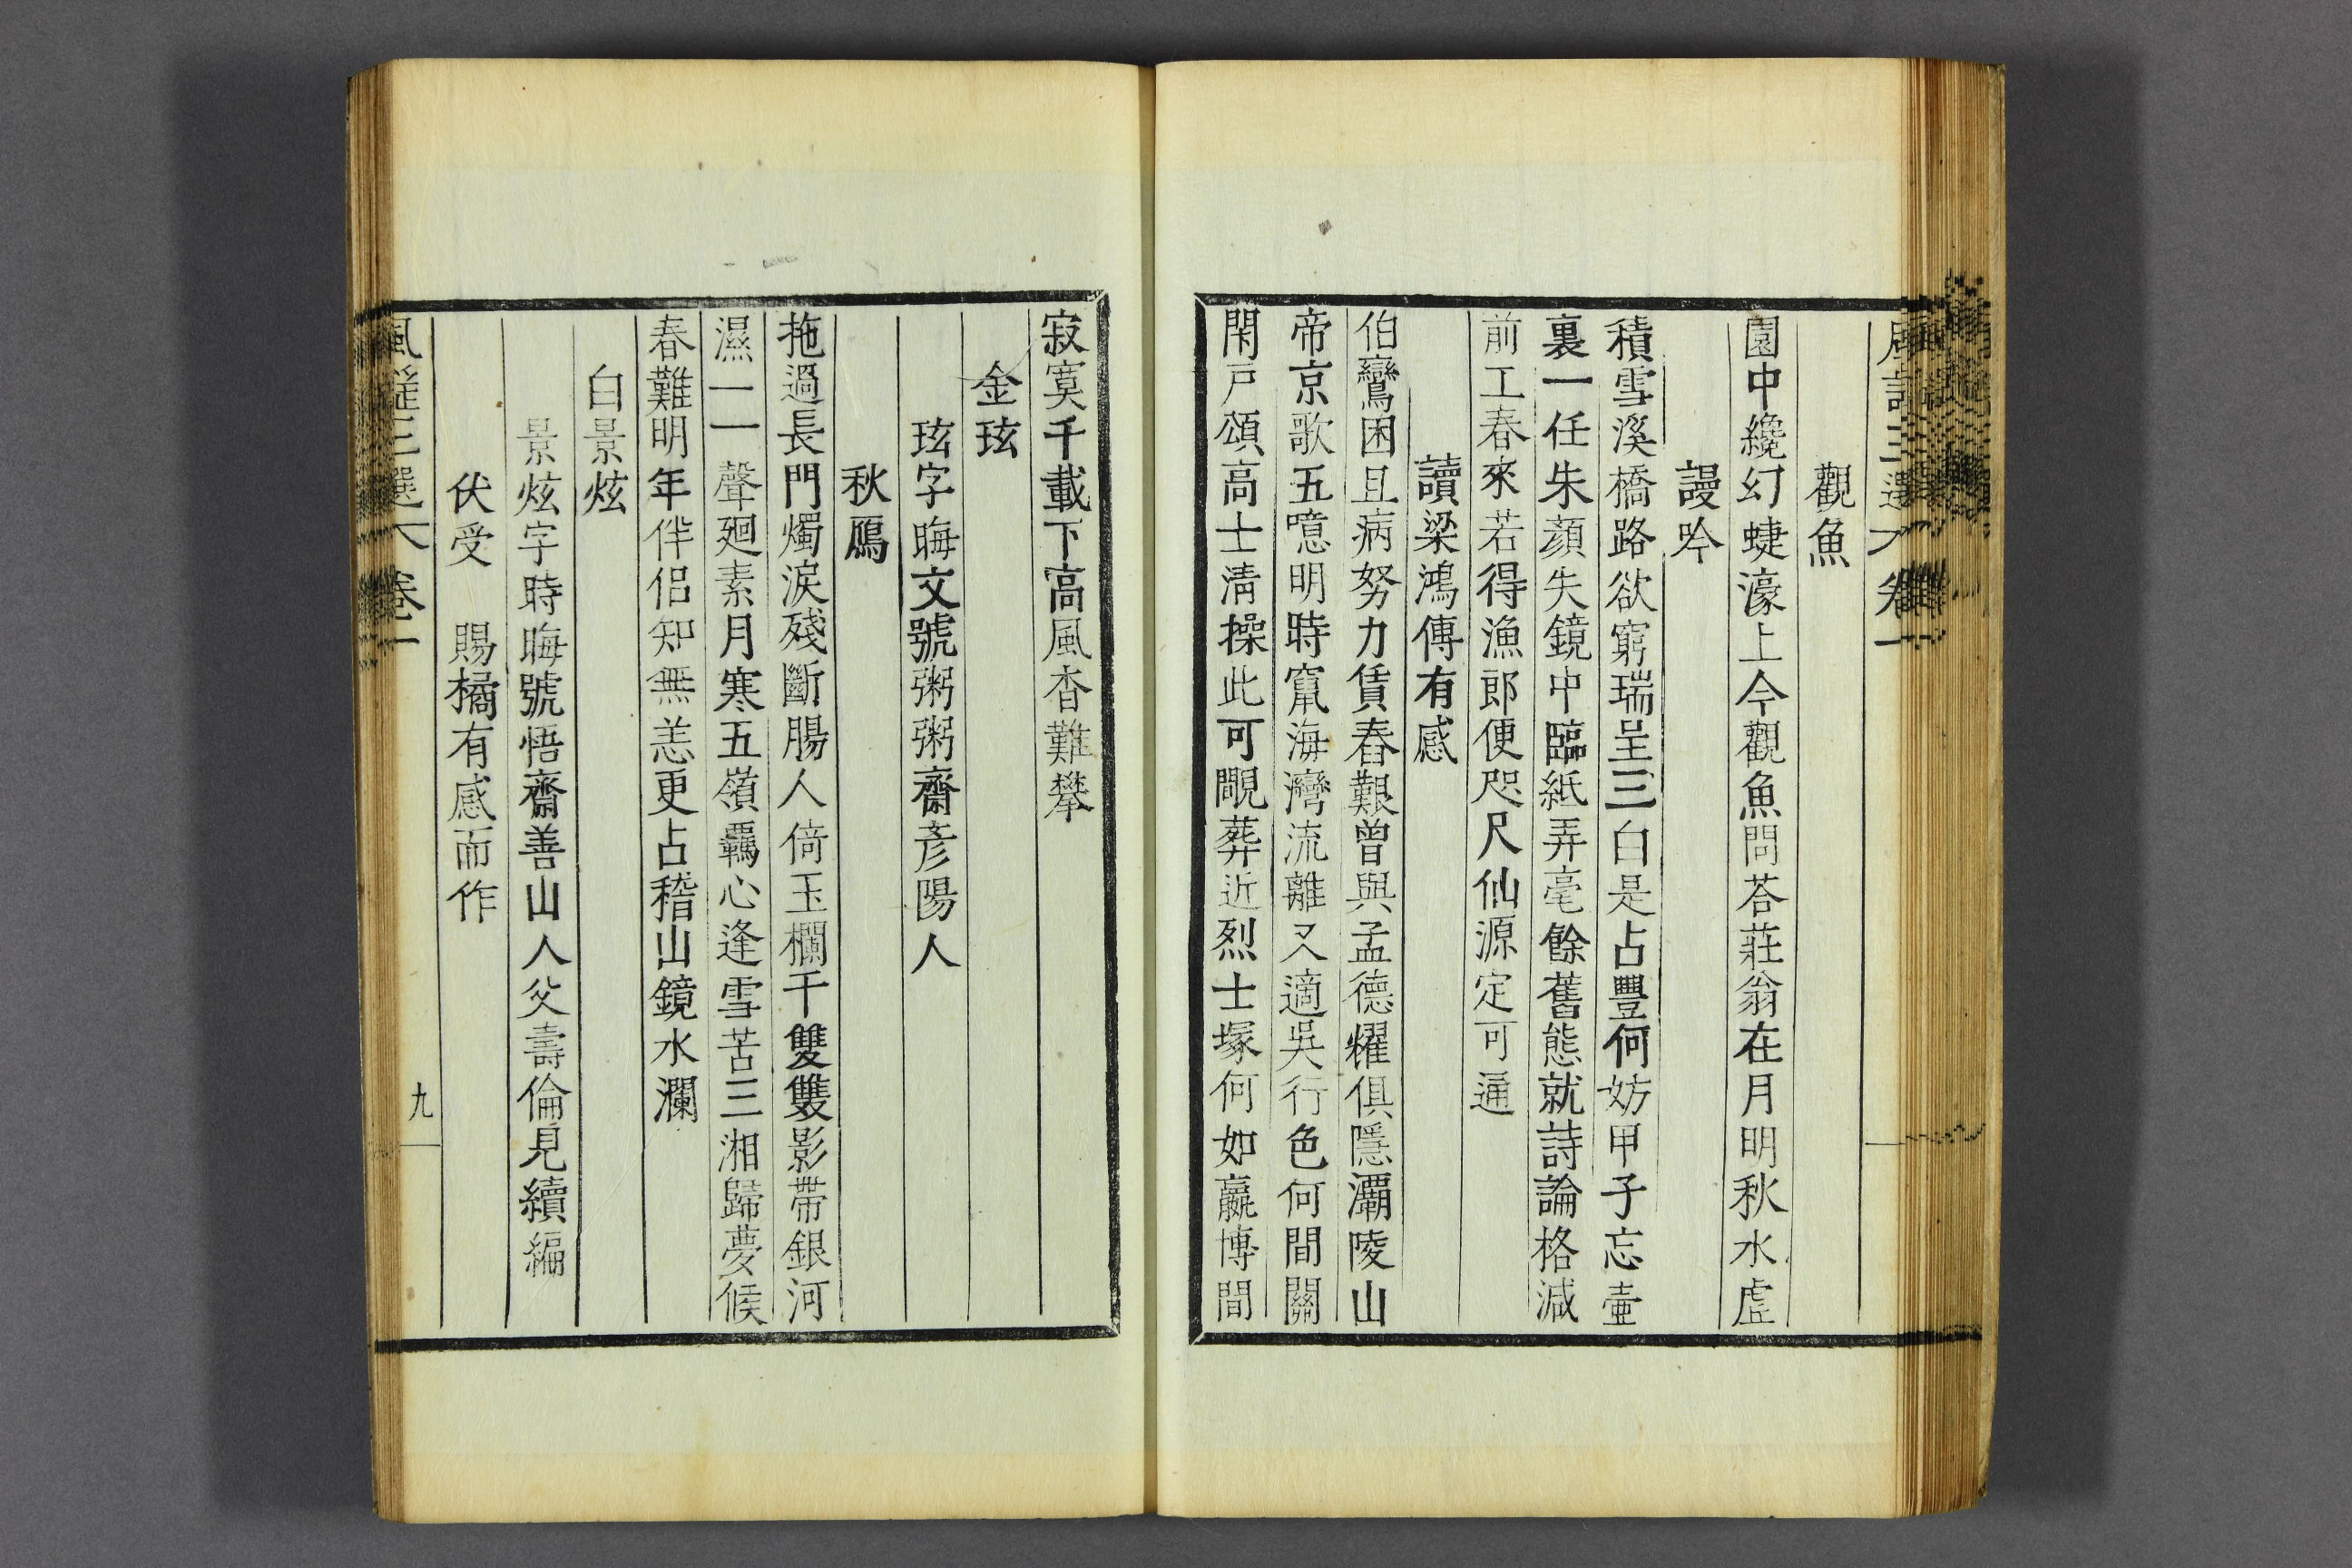 觀魚
園中纔幻蜨濠上今觀魚問荅莊翁在月明秋水虛
謾吟
積雪溪橋路欲窮瑞呈三白是占豐何妨甲子忘壷
裏一任朱顏失鏡中臨紙弄毫餘舊態就詩論格減
前工春來若得漁郎便咫尺仙源定可通
讀梁鴻傳有感
伯鸞困且病努力賃舂艱曾與孟德耀俱隱灞陵山
帝京歌五噫明時竄海灣流離又適吳行色何間關
閑戶頌高士淸操此可覸葬近烈士塚何如嬴博間
寂寞千載下高風杳難攀
金玹
玹字晦文號粥粥齋彥陽人
秋鴈
拖過長門燭淚殘斷腸人倚玉欄干雙雙影帶銀河
濕一一聲廻素月寒五嶺羈心逢雪苦三湘歸夢候
春難明年伴侶知無恙更占稽山鏡水瀾
白景炫
景炫字時晦號悟齋善山人父壽倫見續編
伏受 賜橘有感而作
風謠三選 卷二
九